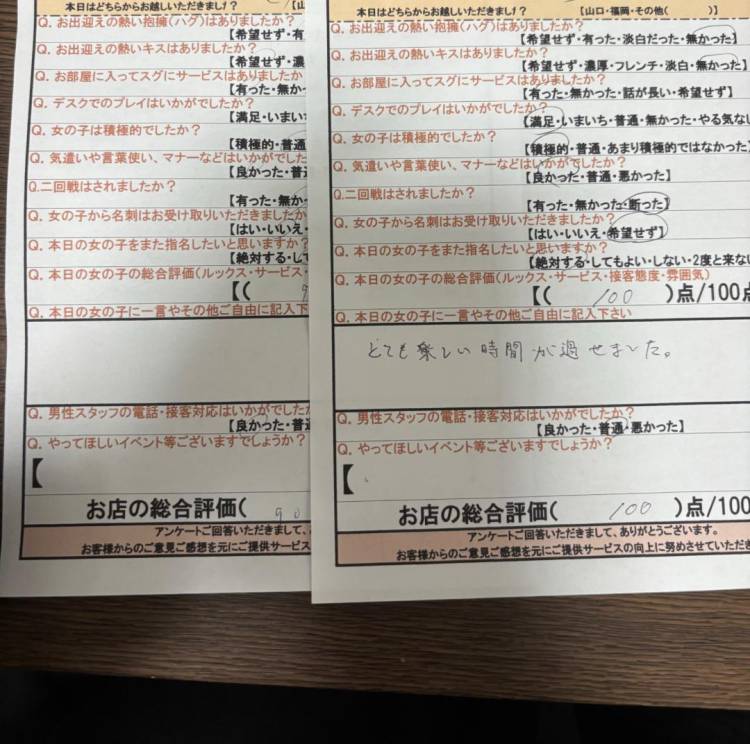 本日はどちらからお越しいただきまし!?
Q. お出迎えの熱い抱擁(ハグ)はありましたか?
【希望せず・有
Q. お出迎えの熱いキスはありましたか?
【希望せず・濃
Q. お部屋に入ってスグにサービスはありましたか
【有った・無か
Q. デスクでのプレイはいかがでしたか?
【満足・いまいち
Q. 女の子は積極的でしたか?
【積極的・普通
Q. 気遣いや言葉使い、マナーなどはいかがでした
【良かった・普
Q.二回戦はされましたか?
【有った・無か
Q. 女の子から名刺はお受け取りいただきました
【はい・いいえ
Q. 本日の女の子をまた指名したいと思いますか?
【絶対する・して
Q. 本日の女の子の総合評価(ルックス・サービス・
【(
Q. 本日の女の子に一言やその他ご自由に記入下
Q. 男性スタッフの電話・接客対応はいかがでしたか
【良かった・普通
Q. やってほしいイベント等ございますでしょうか?
【
お店の総合評価( 90
アンケートご回答いただきまして、
お客様からのご意見ご感想を元にご提供サービス
本日はどちらからお越しいただきまし!?
【山口・福岡・その他( )】
Q. お出迎えの熱い抱擁(ハグ)はありましたか?
【希望せず・有った・淡白だった・無かった】
Q. お出迎えの熱いキスはありましたか?
【希望せず・濃厚・フレンチ・淡白・無かった】
Q. お部屋に入ってスグにサービスはありましたか?
【有った・無かった・話が長い・希望せず】
Q. デスクでのプレイはいかがでしたか?
【満足・いまいち・普通・無かった・やる気な
Q. 女の子は積極的でしたか?
【積極的・普通・あまり積極的ではなかった】
Q. 気遣いや言葉使い、マナーなどはいかがでしたか?
【良かった・普通・悪かった】
Q.二回戦はされましたか?
【有った・無かった・断った】
Q. 女の子から名刺はお受け取りいただきましたか?
【はい・いいえ・希望せず】
Q. 本日の女の子をまた指名したいと思いますか?
【絶対する・してもよい・しない・2度と来な
Q. 本日の女の子の総合評価(ルックス・サービス・接客態度・雰囲気)
【( 100 )点/100点
Q. 本日の女の子に一言やその他ご自由に記入下さい
とても楽しい時間が過せました。
Q. 男性スタッフの電話・接客対応はいかがでしたか?
【良かった・普通・悪かった】
Q. やってほしいイベント等ございますでしょうか?
【
お店の総合評価( 100 )点/100
アンケートご回答いただきまして、ありがとうございます。
お客様からのご意見ご感想を元にご提供サービスの向上に努めさせていただき